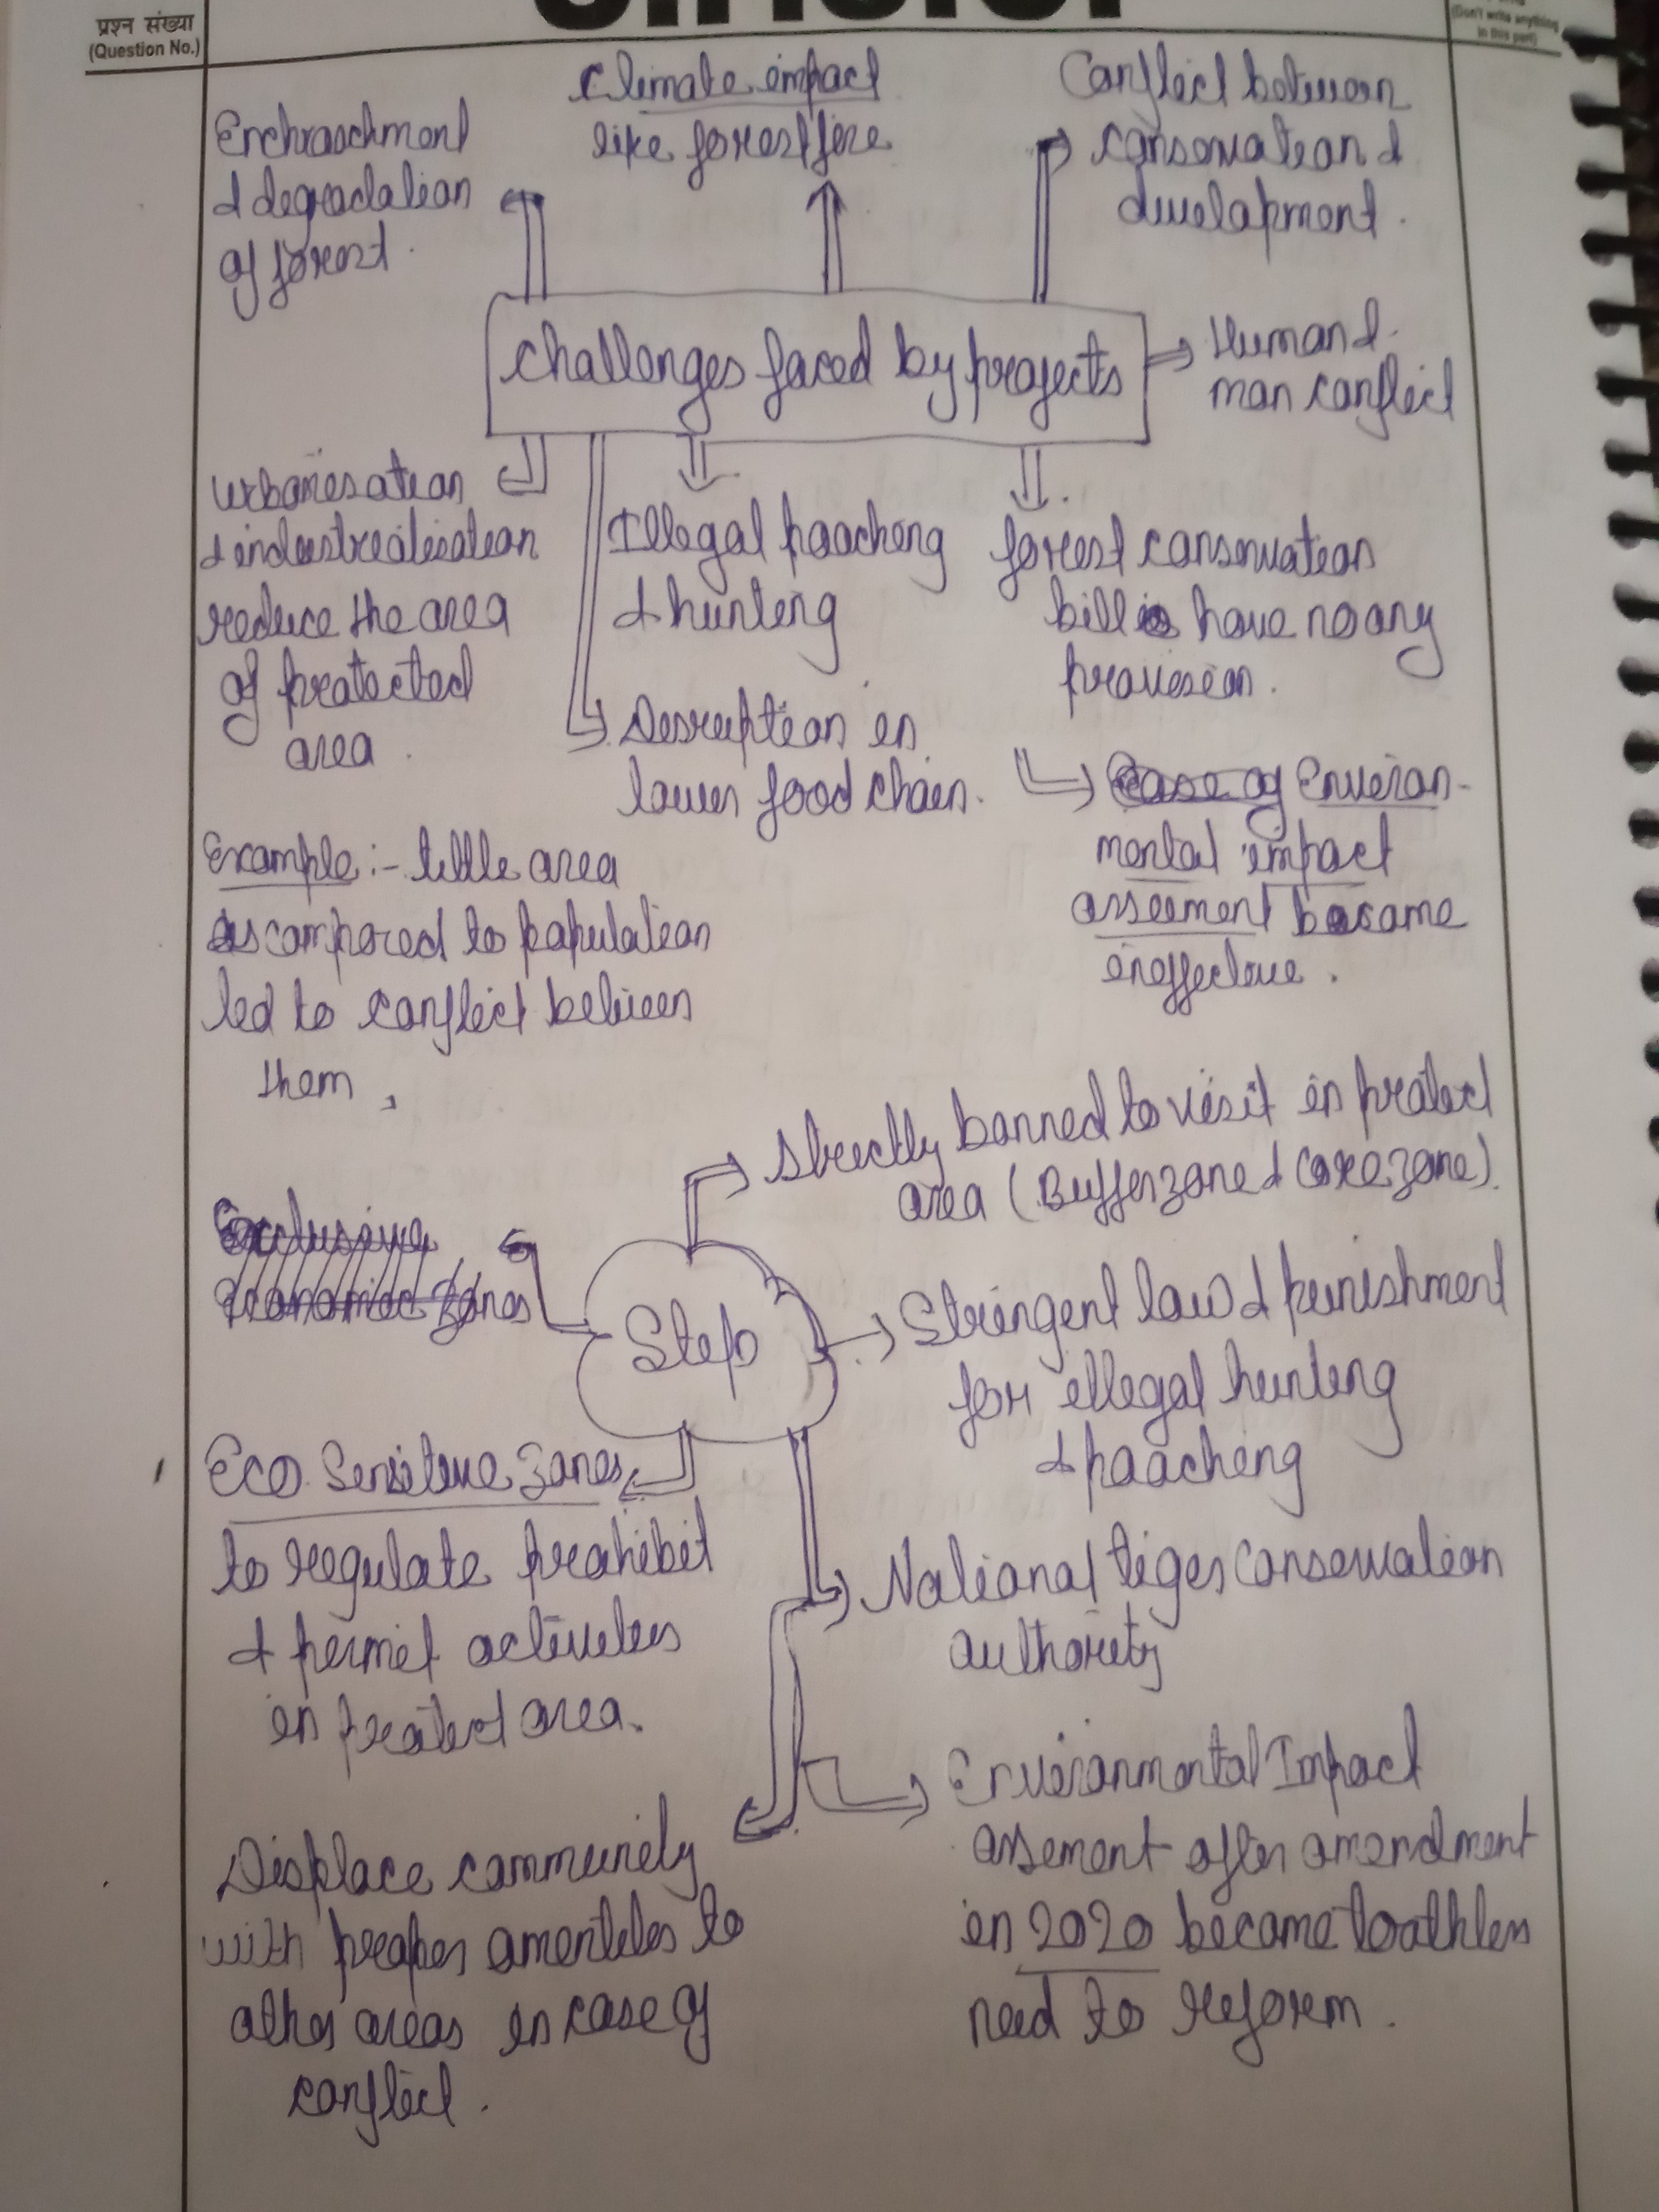 प्रश्न संख्या
(Question No.)
(Don't write anything
in this part)
Climate impact
like forest fire
Conflict between
conservation &
development.
Enchroachment
& degradation
of forest.
Challenges faced by projects
Human &
man conflict
urbanisation
& industrialisation
reduce the area
of protected
area.
Illegal poaching
& hunting
Disruption in
lower food chain.
forest conservation
bill have no any
provision.
Case of Environ-
mental impact
asseement became
ineffective.
Example :- little area
as compared to population
led to conflict between
them,
Strictly banned to visit in protect
area (Buffer zone & Core zone).
Exclusive
Economic Zones
Step
Stringent law & punishment
for illegal hunting
& poaching
Eco Sensitive Zones
to regulate prohibit
& permit activities
in protect area.
National tiger conservation
authority
Environmental Impact
assement after amendment
in 2020 became toothless
need to reform.
Displace community
with proper amenities to
other areas in case of
conflict.